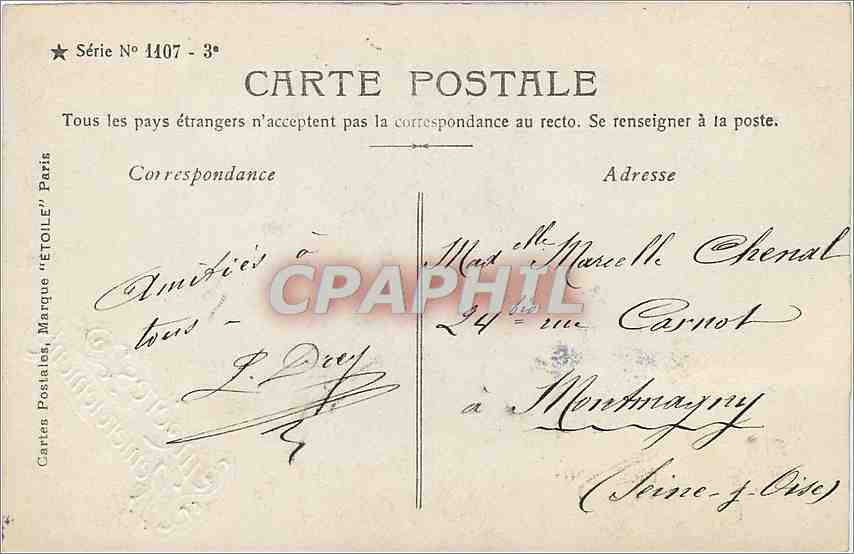 ★ Série Nº 1107 - 3e
CARTE POSTALE
Tous les pays étrangers n'acceptent pas la correspondance au recto. Se renseigner à la poste.
Correspondance
Adresse
Cartes Postales, Marque "ÉTOILE" Paris
Amitiés à
tous -
Madelle Marcelle Chenal
24 bis rue Carnot
à Montmagny
(Seine-&-Oise)
CPAPHIL